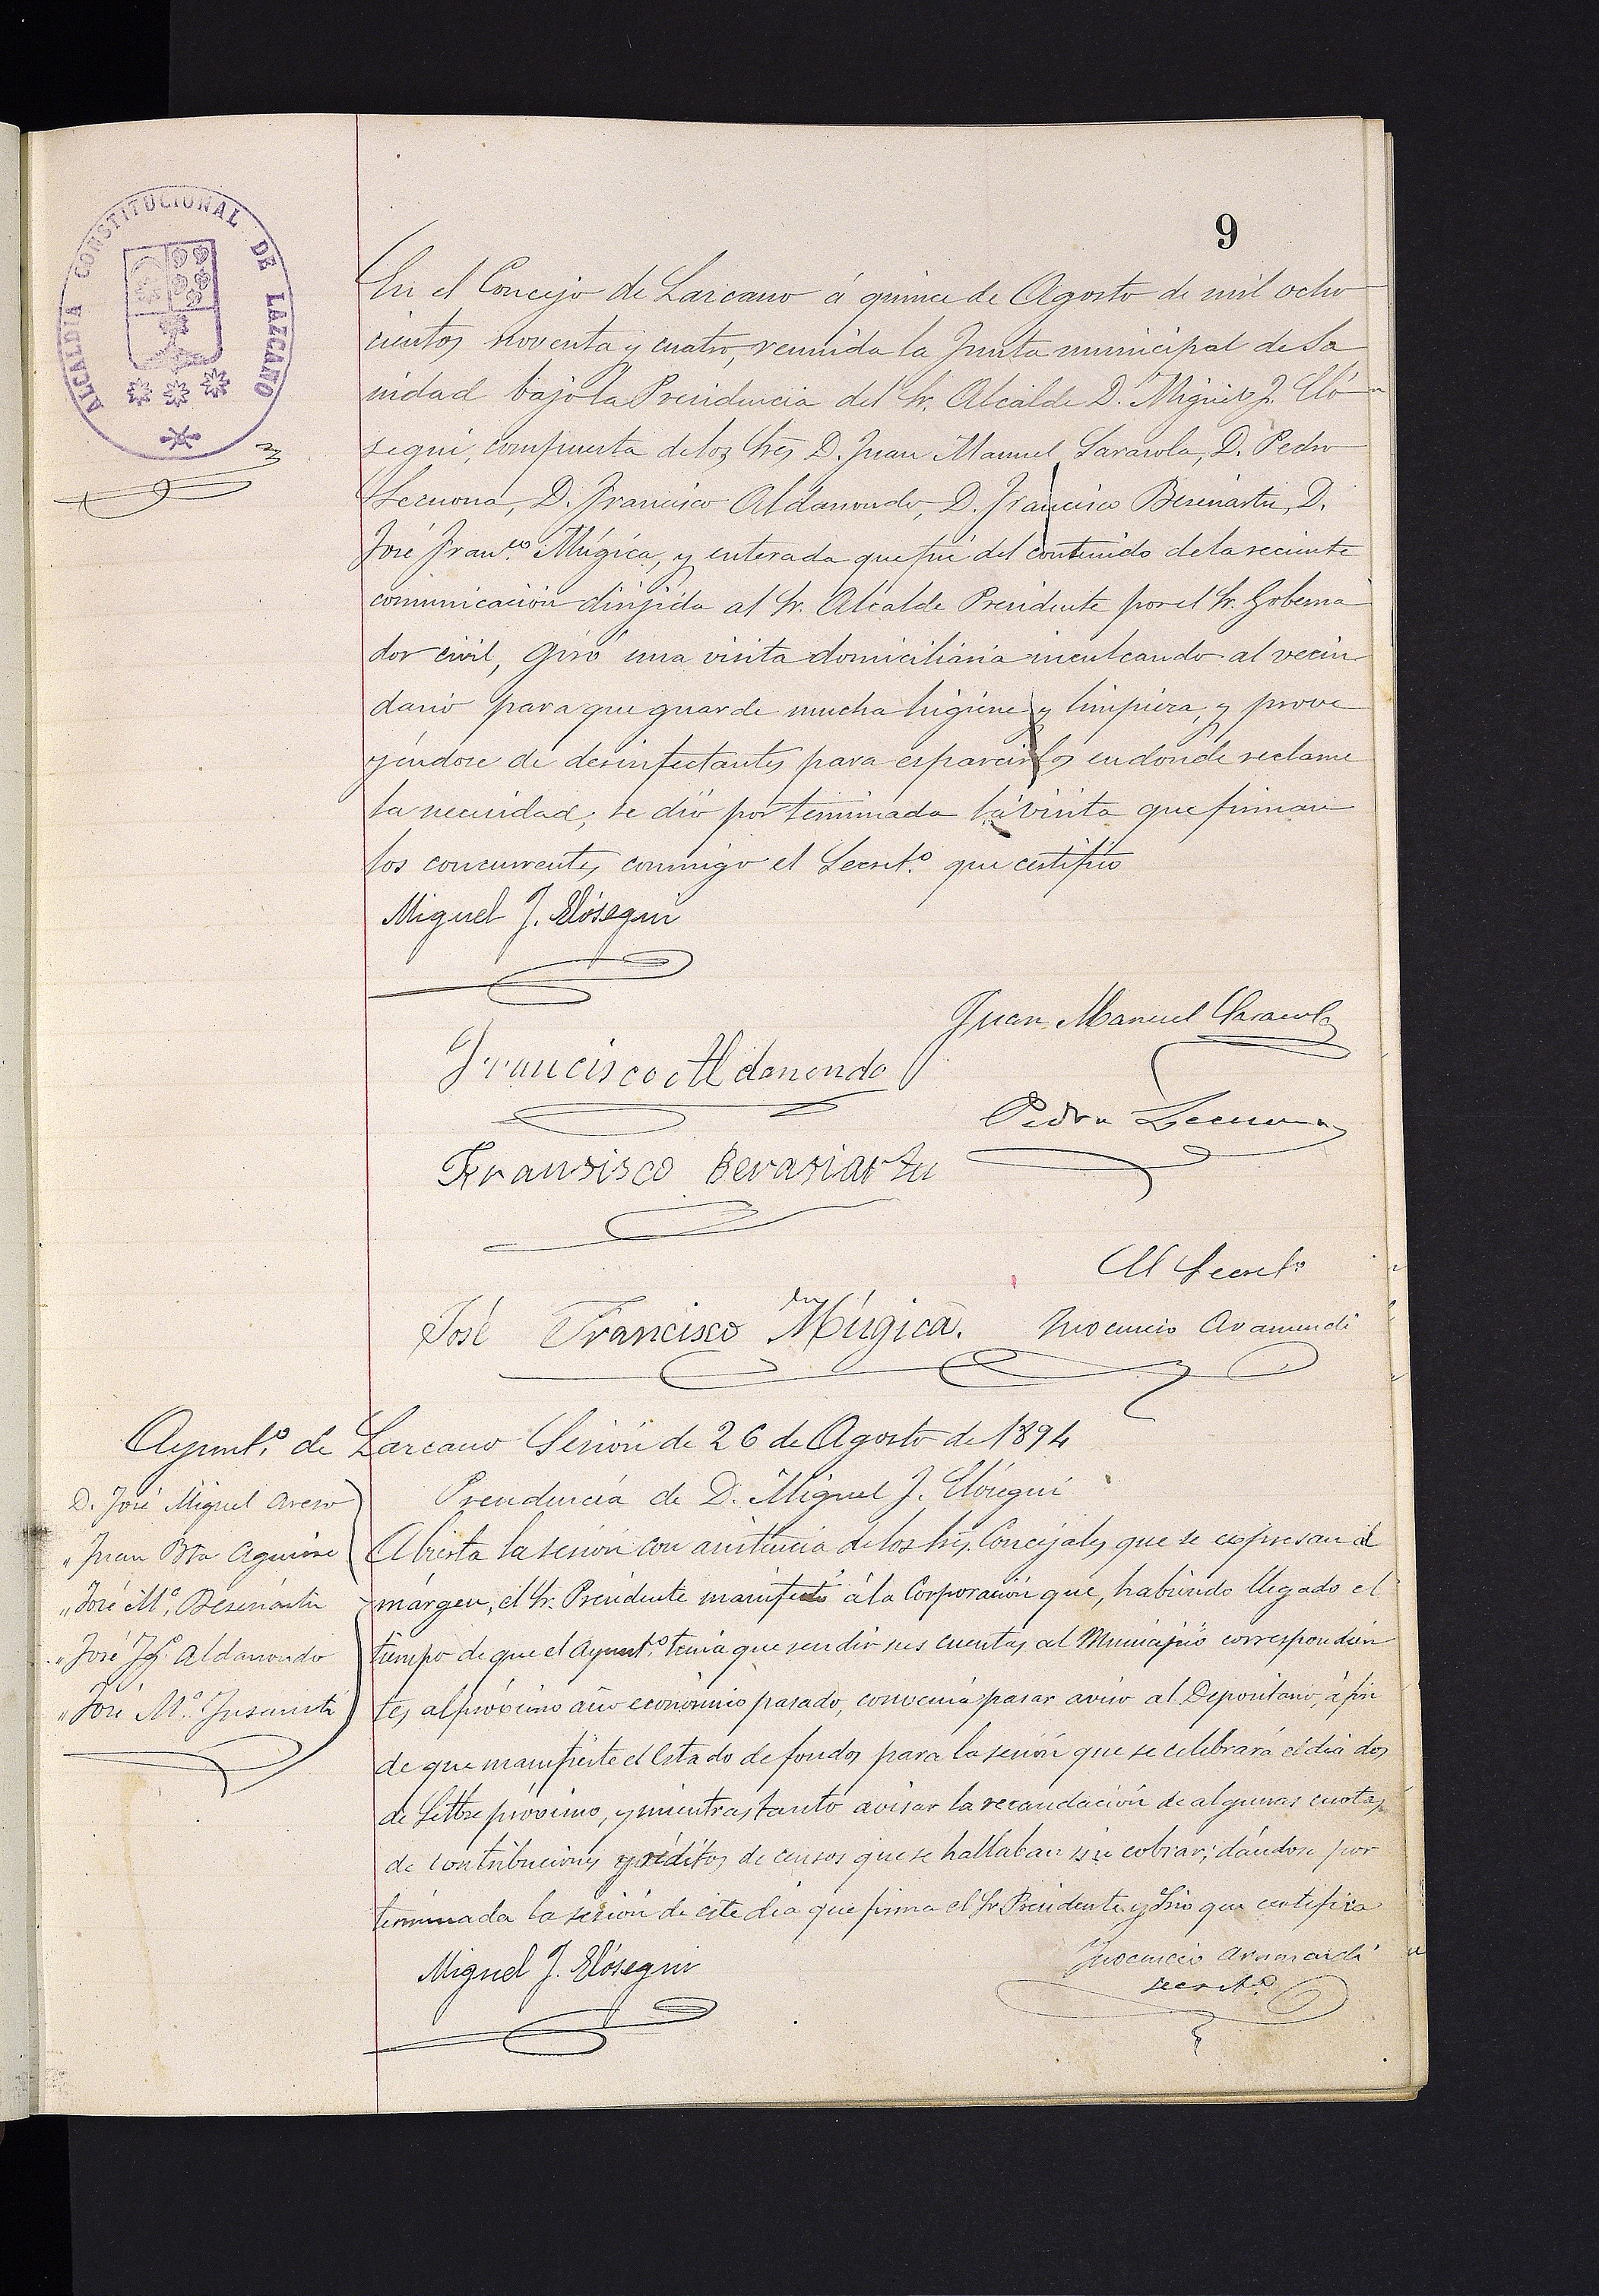 9
ALCALDIA CONSTITUCIONAL DE LAZCANO
En el Concejo de Lazcano á quince de Agosto de mil ocho
cientos noventa y cuatro, reunida la Junta municipal de Sa
nidad bajo la Presidencia del Sr. Alcalde D. Miguel J. Eló
segui, compuesta de los Sres D. Juan Manuel Sarasola, D. Pedro
Lecuona, D. Francisco Aldanondo, D. Francisco Beseriartu, D.
José Franco. Múgica, y enterada que fué del contenido de la reciente
comunicación dirijida al Sr. Alcalde Presidente por el Sr. Goberna
dor civil, giró una visita domiciliaria inculcando al vecin
dario para que guarde mucha higiene y limpieza, y prove
yéndose de desinfectantes para esparcirlos en donde reclame
la necesidad; se dió por terminada la visita que firman
los concurrentes conmigo el Secret.º que certifico
Miguel J. Elósegui
Juan Manuel Sarasola
Francisco Aldanondo
Pedro Lecuona
Fransisco Berasiartu
El Secret.º
José Francisco Múgica. Inocencio Aramendi
Ayunt.º de Lazcano Sesión de 26 de Agosto de 1894
Presidencia de D. Miguel J. Elósegui
D. José Miguel
" Juan Bta Aguirre
" José M.ª
" José Aldanondo
" José M.ª Insausti
Abierta la sesión con asistencia de los Sres. Concejales que se expresan al
márgen, el Sr. Presidente manifestó á la Corporación que, habiendo llegado el
tiempo de que el Ayunt.º tenia que rendir sus cuentas al Municipio correspondien
tes al próximo año económico pasado, convenia pasar aviso al Depositario, á fin
de que manifieste el Estado de fondos para la sesión que se celebrará el dia dos
de Setbre próximo, y mientras tanto avisar la recaudación de algunas cuotas
de contribuciones y réditos de censos que se hallaban sin cobrar; dándose por
terminada la sesión de este dia que firma el Sr Presidente y Srio que certifica
Miguel J. Elósegui
Inocencio Aramendi
Secret.º